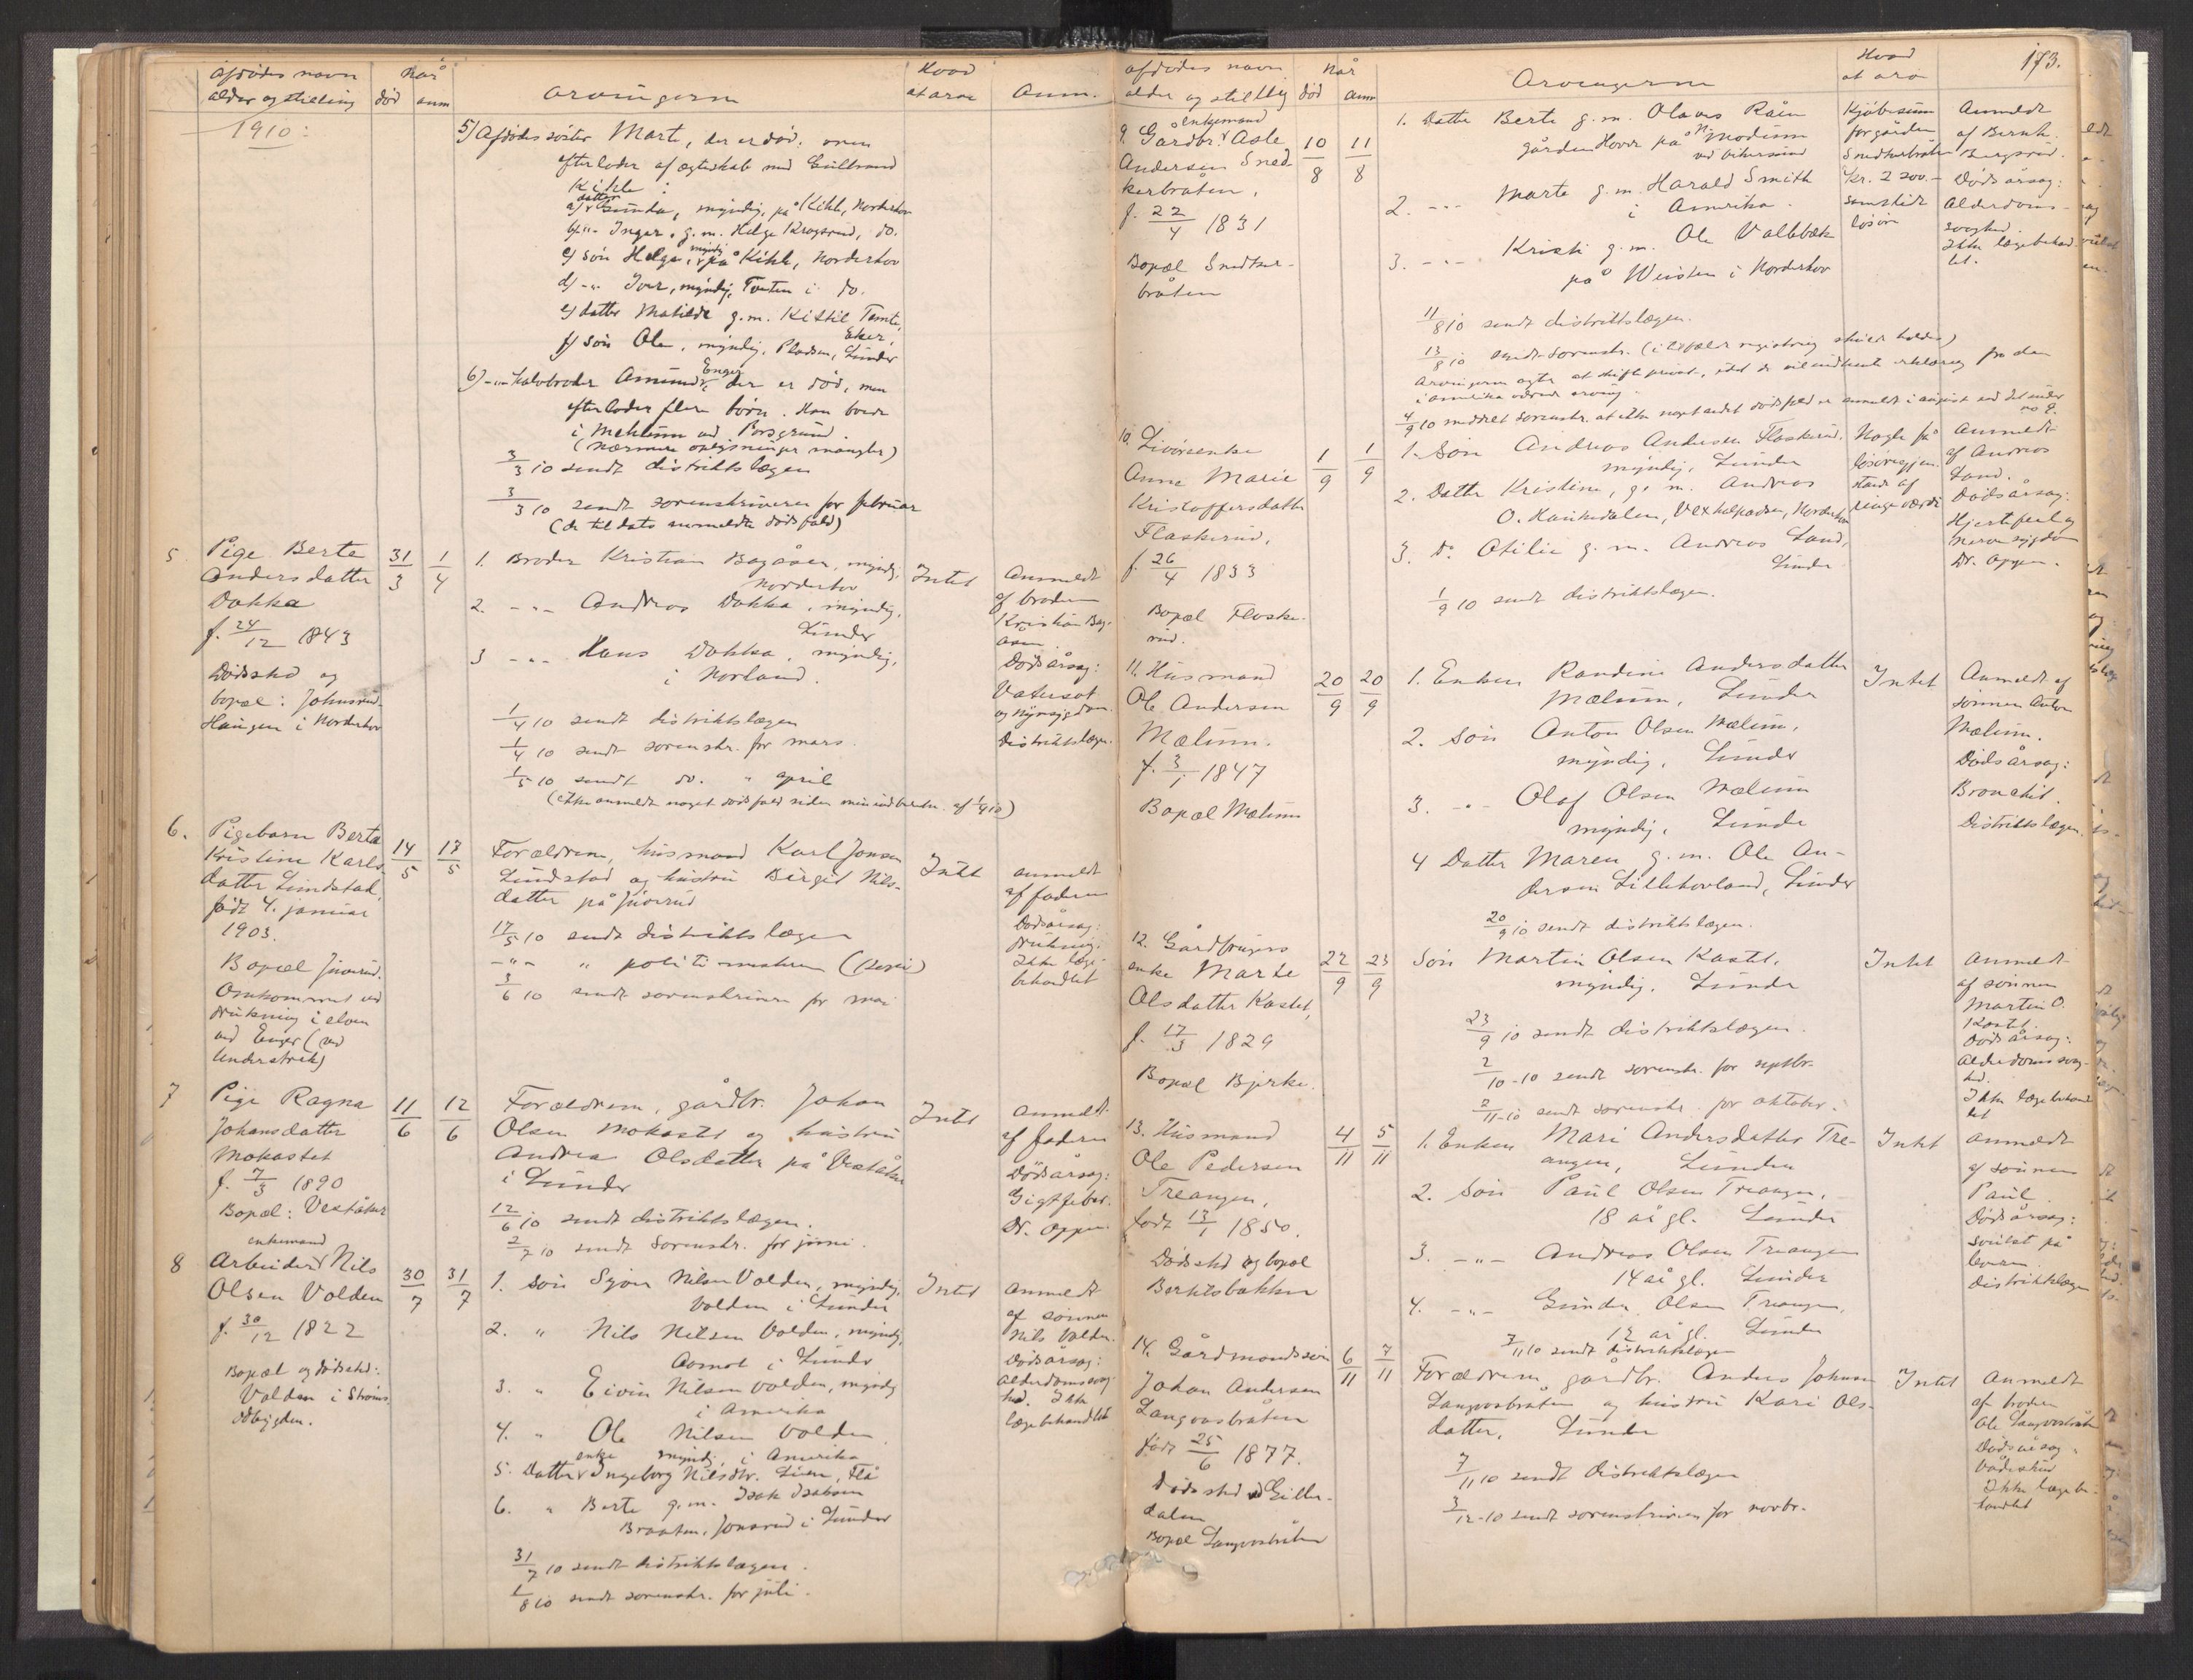 Afdødes navn
alder og stilling
Når
død
anm
Arvingerne
Hvad
at arve
Anm.
1910:
5) Afdødes søster Marte, der er død, men
efterlader af ægteskab med Gulbrand
Kihle:
a) datter Gunda, myndig, på Kihle, Norderhov
b) -"- Inger, g.m. Helge Krogsrud, do.
c) søn Helge, myndig, på Kihle, Norderhov
d) -"- Iver, myndig, i do.
e) datter Matilde g.m. Kittil Tomte,
Eker,
f) søn Ole, myndig, Pladsen, Lunder
6) -"- Halvbroder Amund Enger, der er død, men
efterlader flere børn. Han boede
i ved Porsgrund.
(Nærmere oplysninger mangler)
3/3 10 sendt distriktslægen
3/3 10 sendt sorenskriveren for februar
(de til dato anmeldte dødsfald)
5. Pige Berte
Andersdatter
Dokka
f. 24/12 1843
Dødssted og
bopæl: Johnsrud-
Haugen i Norderhov
31/3
1/4
1. Broder Kristian Bagåsen, myndig,
Norderhov
2. -"- Andreas Dokka, myndig,
Lunder
3 -"- Hans Dokka, myndig,
i Norland.
1/4 10 sendt distriktslægen
1/4 10 sendt sorenskr. for mars.
1/5 10 sendt do. " april
(ikke anmeldt noget dødsfald siden min indberetn. af 1/4 10)
Intet
Anmeldt
af broderen
Kristian Bag-
åsen
Dødsårsag:
Vatersot
og nyresygdom.
Distriktslægen.
6. Pigebarn Berta
Kristine Karls-
datter Lundstad,
født 4. januar
1903.
Bopæl Juverud.
Omkommet ved
drukning i elven
ved Enger (ved
Understrek)
14/5
17/5
Forældrene, husmand Karl Jonsen
Lundstad og hustru Birgit Nils-
datter på Juverud
17/5 10 sendt distriktslægen
-"- " politimesteren
3/6 10 sendt sorenskriveren for mai
Intet
anmeldt
af faderen
Dødsårsag:
drukning.
Ikke læge-
behandlet
7 Pige Ragna
Johansdatter
Mokastet
f. 7/3 1890
Bopæl: Vestaker
11/6
12/6
Forældrene, gårdbr. Johan
Olsen Mokastet og hustru
Andrea Olsdatter på Vestaker
i Lunder
12/6 10 sendt distriktslægen.
2/7 10 sendt Sorenskr. for juni.
Intet
anmeldt
af faderen
Dødsårsag:
Gigtfeber.
Dr. Oppen.
8 Arbeider enkemand Nils
Olsen Volden
f. 30/12 1822
Bopæl og dødssted:
Volden i Strøms-
oddbygden.
30/7
31/7
1. søn Syver Nilsen Volden, myndig,
Volden i Lunder
2. " Nils Nilsen Volden, myndig,
i Lunder
3. " Eivin Nilsen Volden, myndig
i Amerika
4. " Ole Nilsen Volden
myndig, i Amerika
5. Datter enke Ingeborg Nilsdtr. Lien, Flå
6. " Berte g.m. Isak Isaksen
Braaten, Jonsrud i Lunder
31/7 10 sendt distriktslægen.
1/8 10 sendt sorenskr. for juli.
Intet
Anmeldt
af sønnen
Nils Volden.
Dødsårsag:
Alderdomssvag-
hed. Ikke
lægebehandlet
173.
Afdødes navn
alder og stilling
Når
død
Anm
Arvingerne
Hvad
at arve
9. Gårdbr. enkemand Asle
Andersen Sned-
kerbråten,
f. 22/4 1831
Bopæl Snedker-
bråten
10/8
11/8
1. Datter Berte g.m. Olaves Råen
gården Hovre på N. Modum
ved Vikersund
2. -"- Marte g.m. Harald Smith
i Amerika.
3. -"- Kristi g.m. Ole Vallebæk
på Weisten i Norderhov
11/8 10 sendt distriktslægen.
13/8 10 sendt Sorenskr. (i tilfælde registrering skulde holdes)
Arvingerne agter at skifte privat, idet de vil indhente erklæring fra den
i Amerika værende arving.
4/9 10 meddelt sorenskr. at ikke noget andet dødsfald er anmeldt i august end det under
no 9.
Kjøbesum
for gården
Snedkerbråten
kr. 2200.-
samt lidt
løsøre
Anmeldt
af Bernh.
Bergsrud.
Dødsårsag:
Alderdoms-
svaghed.
Ikke lægebehand-
let.
10. Livøreenke
Anne Marie
Kristoffersdatter
Flaskerud,
f. 26/4 1833
Bopæl Flaske-
rud.
1/9
1/9
1. Søn Andreas Andersen Flaskerud,
myndig, Lunder
2. Datter Kristine, g.m. Andreas
O. Hankedalen, Norderhov
3. Do Otilie g.m. Andreas Sand,
Lunder
1/9 10 sendt distriktslægen.
Nogle få
løsøregjen-
stande af
ringe værdi
Anmeldt
af Andreas
Sand.
Dødsårsag:
Hjertefeil og
nervesygdom
Dr. Oppen.
11. Husmand
Ole Andersen
Mælum.
f. 3/1 1847
Bopæl Mælum
20/9
20/9
1. Enken Randine Andersdatter
Mælum, Lunder
2. Søn Anton Olsen Mælum,
myndig, Lunder
3. -"- Olaf Olsen Mælum
myndig, Lunder
4 Datter Maren g.m. Ole An-
dersen Lillehovland, Lunder
20/9 10 sendt distriktslægen.
Intet
Anmeldt af
sønnen Anton
Mælum.
Dødsårsag:
Bronchit.
Distriktslægen.
12. Gårdbrugers
enke Marte
Olsdatter Kastet,
f. 17/3 1829
Bopæl Bjerke.
22/9
23/9
Søn Martin Olsen Kastet,
myndig, Lunder
23/9 10 sendt distriktslægen.
2/10-10 sendt sorenskr. for septbr.
2/11-10 sendt sorenskr. for oktober.
Intet
Anmeldt
af sønnen
Martin O.
Kastet.
Dødsårsag:
Alderdomssvag-
hed.
Ikke lægebehand-
let
13. Husmand
Ole Pedersen
Treangen,
født 13/1 1850.
Dødssted og bopæl
Bertilsbakken
4/11
5/11
1. Enken Mari Andersdatter Tre-
angen, Lunder
2. Søn Paul Olsen Treangen,
18 år gl. Lunder
3. -"- Andreas Olsen Treangen
14 år gl. Lunder
4. -"- Gunder Olsen Treangen,
12 år gl. Lunder
7/11 10 sendt distriktslægen
Intet
anmeldt
af sønnen
Paul.
Dødsårsag:
svulst på
leveren
distriktslægen
14. Gårdmandssøn
Johan Andersen
Langvasbråten
født 25/6 1877.
Dødssted
dalen
Bopæl Langvasbråten
6/11
7/11
Forældrene, gårdbr. Anders Johnsen
Langvasbråten og hustru Kari Ols-
datter, Lunder
7/11 10 sendt Distriktslægen
3/12-10 sendt sorenskriveren for novbr.
Intet
Anmeldt
af broderen
Ole Langvasbråten
Dødsårsag:
Vådeskud
Ikke lægebe-
handlet